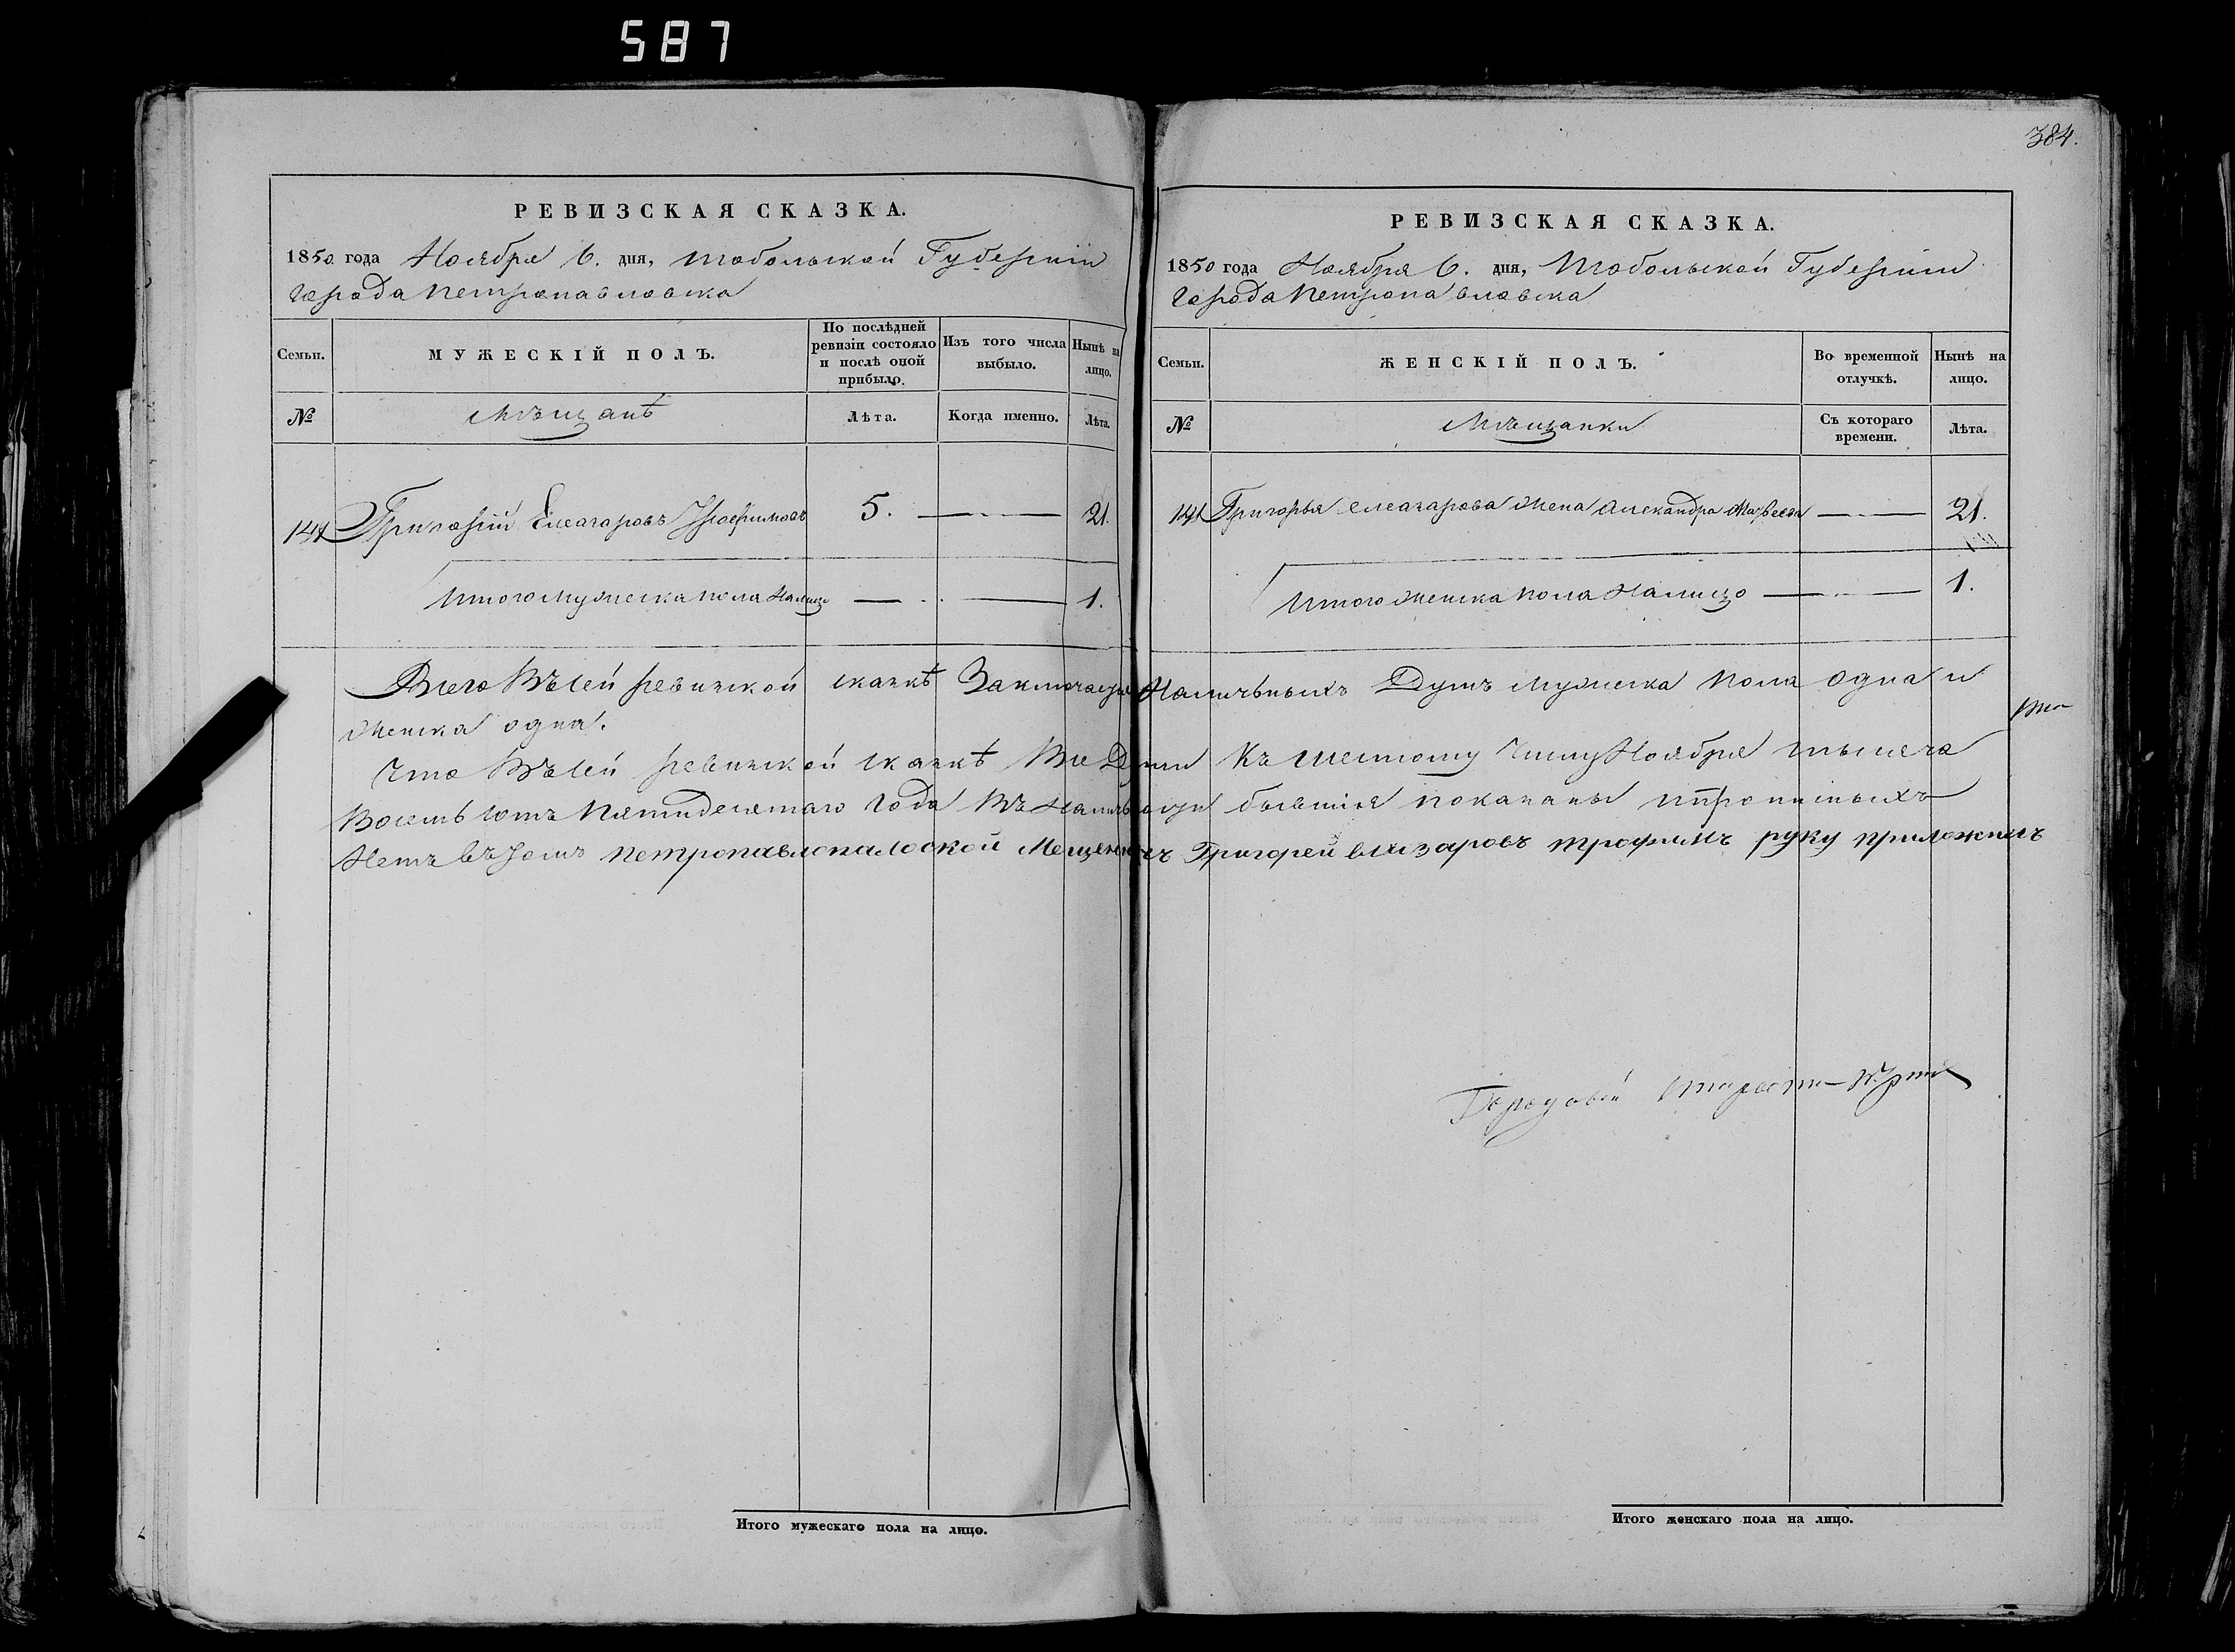 587
384.
РЕВИЗСКАЯ СКАЗКА.
1850 года Ноября 6. дня, Тобольской Губерніи
города Петропавловска
Семьи.
МУЖЕСКІЙ ПОЛЪ.
По послѣдней ревизіи состояло и послѣ оной прибыло.
Изъ того числа выбыло.
Нынѣ на лицо.
№
Мѣщанѣ
Лѣта.
Когда именно.
Лѣта.
141
Григорій Елеазаровъ Трофимовъ
5.
21.
Итого мужеска пола Налицо
1.
РЕВИЗСКАЯ СКАЗКА.
1850 года Ноября 6. дня, Тобольской Губерніи
города Петропавловска
Семьи.
ЖЕНСКІЙ ПОЛЪ.
Во временной отлучкѣ.
Нынѣ на лицо.
№
Мѣщанки
Съ котораго времени.
Лѣта.
141
Григорья Елеазарова жена Александра
21.
Итого женска пола Налицо
1.
Всего Въ сей ревизской сказкѣ Заключается Наличьныхъ Душъ мужеска пола одна и
женска одна.
Что Въ сей ревизской сказкѣ Все Души Къ шестому числу Ноября тысеча
Восемь сотъ Пятидесятаго года Въ Наличьности бывшія показаны и прописныхъ
Нетъ въ томъ петропавлопалоской Мещенинъ Григорей елизаровъ трофимъ руку приложилъ
Городовой староста
Итого мужескаго пола на лицо.
Итого женскаго пола на лицо.